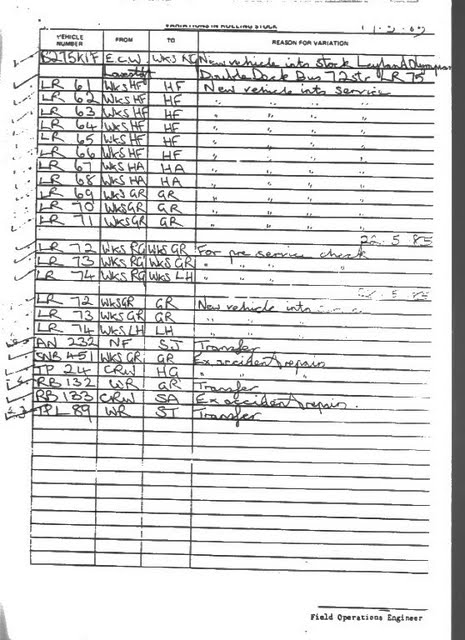 VARIATIONS IN ROLLING STOCK
VEHICLE NUMBER FROM TO REASON FOR VARIATION
B275KPF E.C.W WKS RG New vehicle into stock Leyland Olympian
Lowestoft Double Deck Bus 72 str LR 75
LR 61 WKS HF HF New vehicle into service
LR 62 WKS HF HF " " "
LR 63 WKS HF HF " " "
LR 64 WKS HF HF " " "
LR 65 WKS HF HF " " "
LR 66 WKS HF HF " " "
LR 67 WKS HA HA " " "
LR 68 WKS HA HA " " "
LR 69 WKS GR GR " " "
LR 70 WKS GR GR " " "
LR 71 WKS GR GR " " "
22.5.85
LR 72 WKS RG WKS GR For pre service check
LR 73 WKS RG WKS GR " " "
LR 74 WKS RG WKS LH " " "
5.85
LR 72 WKS GR GR New vehicle into
LR 73 WKS GR GR " "
LR 74 WKS LH LH " "
AN 232 NF SJ Transfer
SNB 451 WKS GR GR Ex accident repair
TP 24 CRW HG " " "
RB 132 WR GR Transfer
RB 133 CRW SA Ex accident repair.
TPL 89 WR ST Transfer
Field Operations Engineer